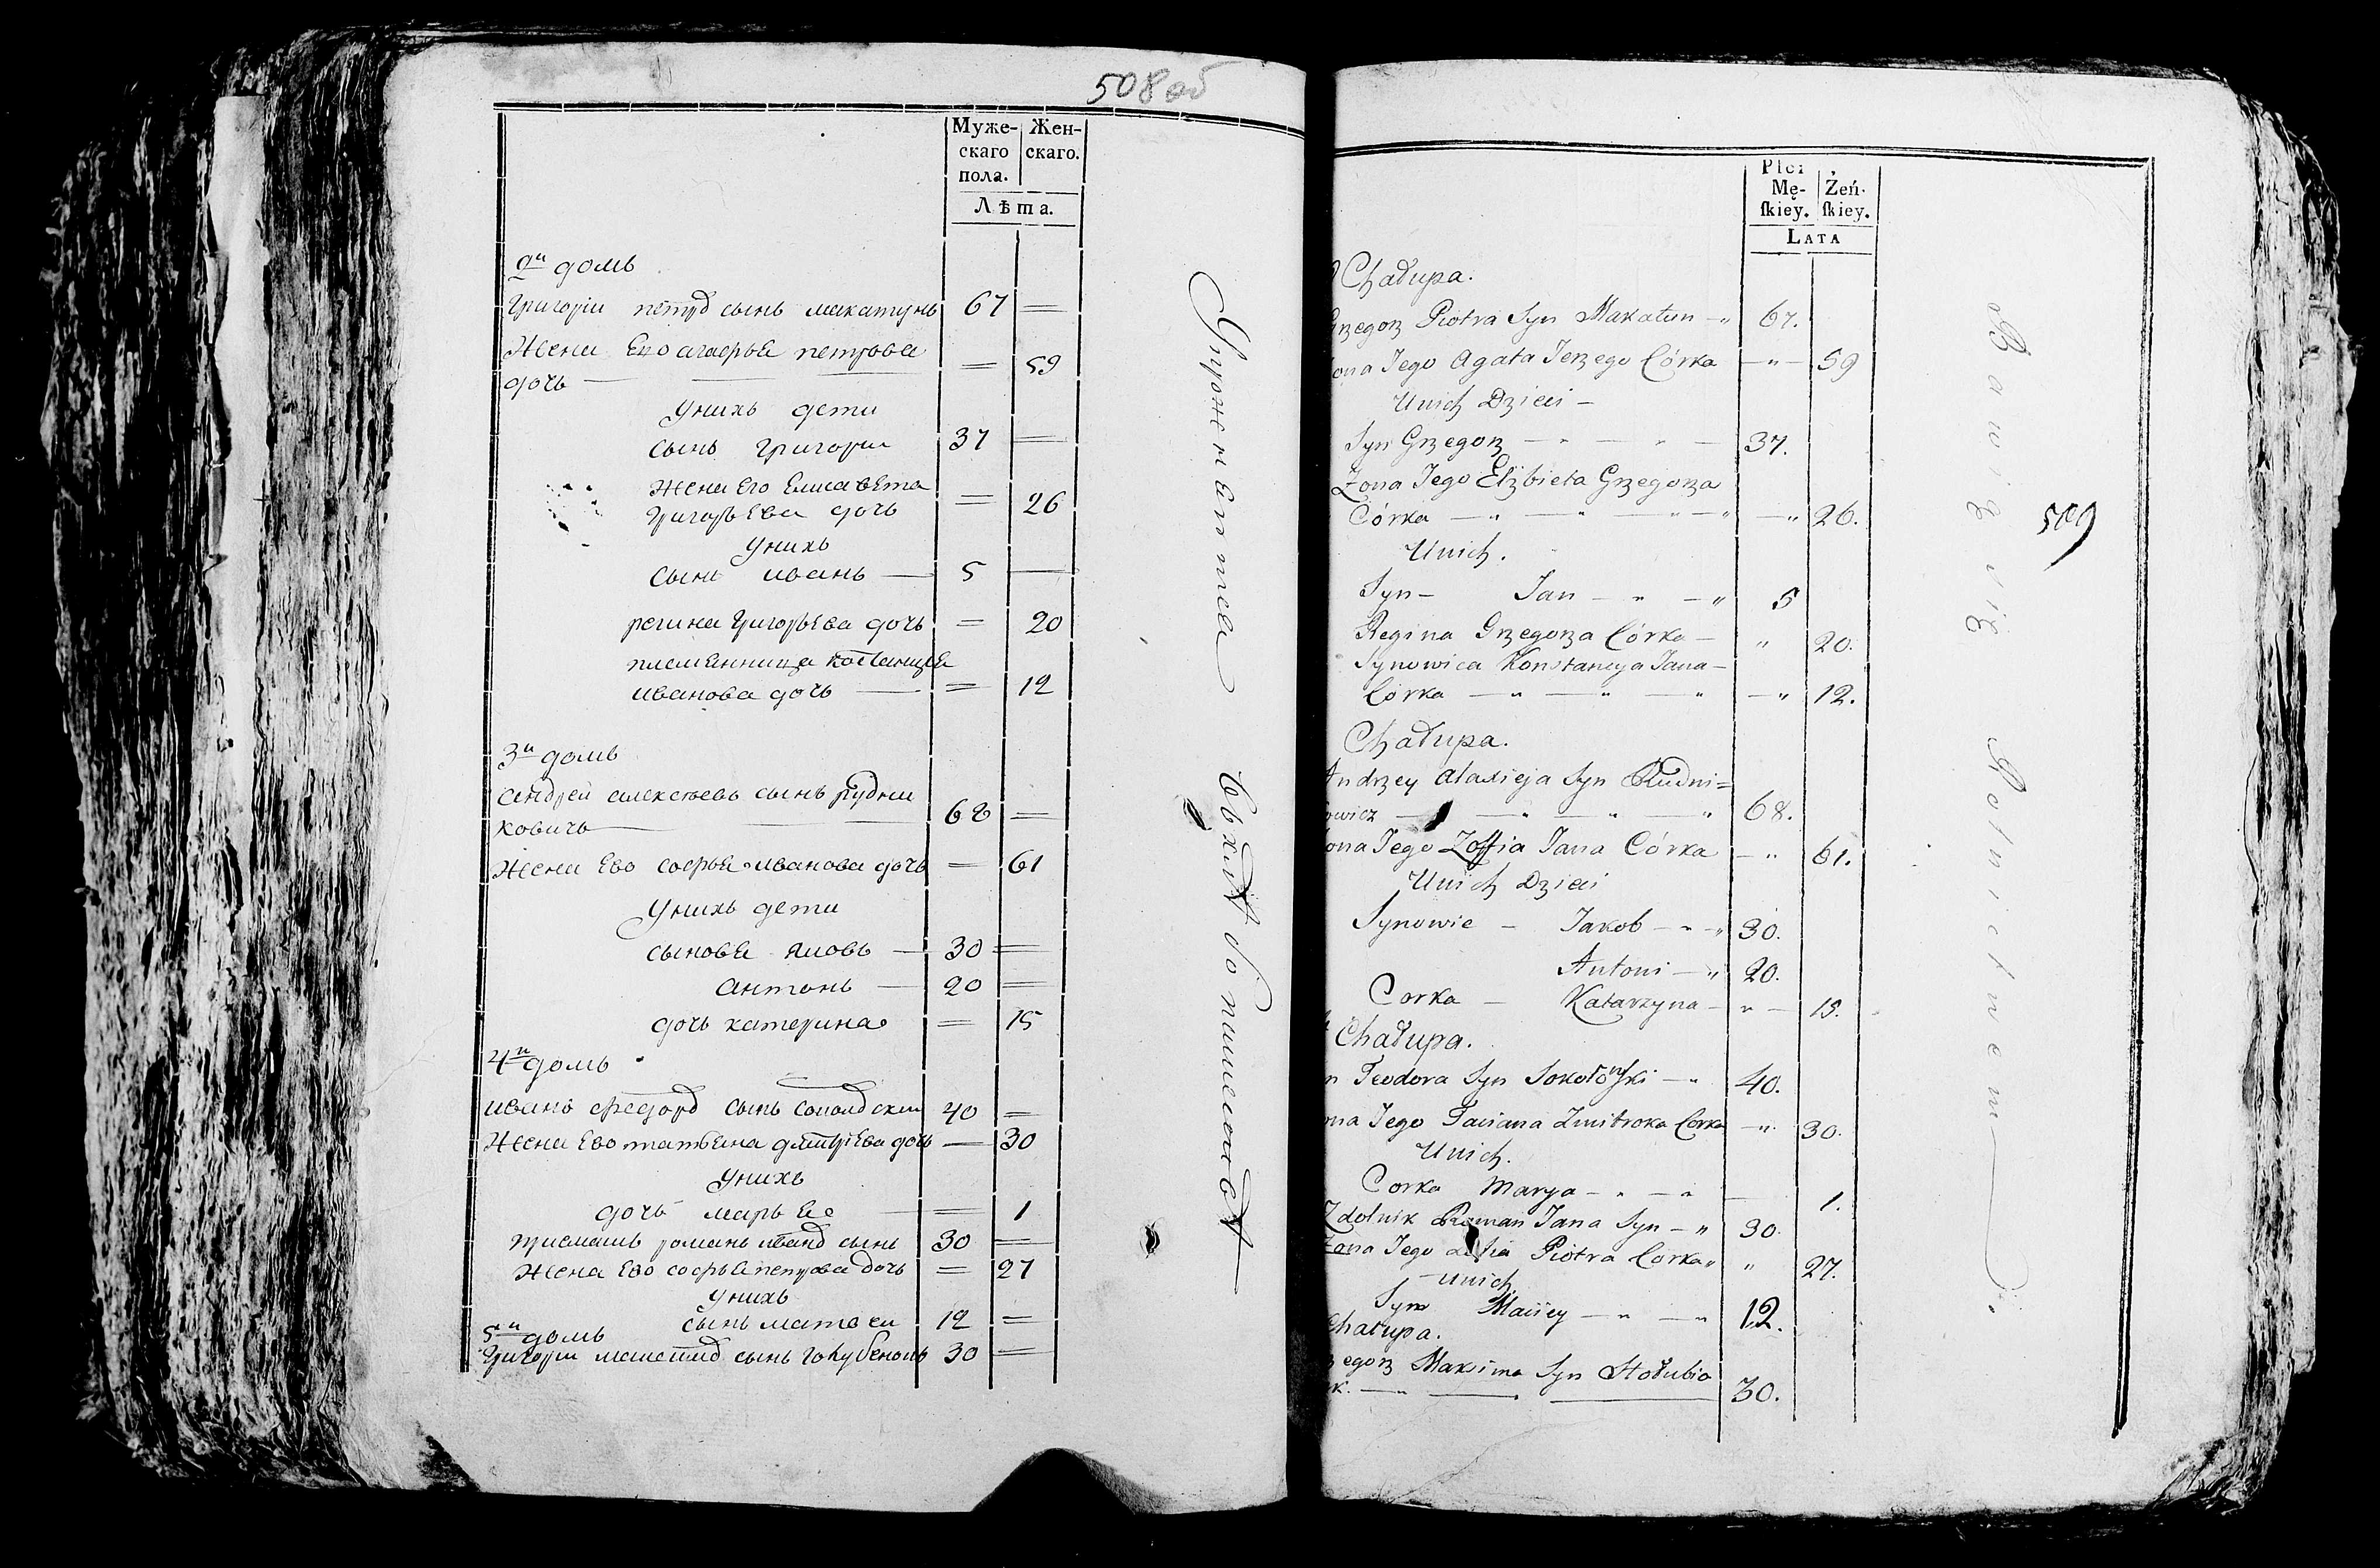 508 об
Муже-
скаго
пола.
Жен-
скаго.
Лѣта.
2й домъ
Григори петрв сынь макатунь 67 =
Жена Его агафья петрова = 59
дочь
Унихъ дети
сынь Григори 37 =
Жена Его Елисавета
Григорьева дочь = 26
Унихъ
сынь ивань 5 —
регина Григорьева дочь = 20
племенница констанция
иванова дочь = 12
3й домъ
андрей алексеевь сынь рудни
ковичь 68 =
Жена Ево софья иванова дочь = 61
Унихъ дети
сыновья яковь 30 =
антонь 20 =
дочь катерина = 15
4й домъ
ивань федорв сынь соколвски 40 =
Жена Ево татьяна дмитрiева дочь — 30
Унихъ
дочь марья = 1
романь иванв сынь 30 =
Жена Ево софья петрова дочь = 27
Унихъ
сынь матвеи 12 =
5й домъ
Григори сынь голубенокь 30 =
Упражняется
в хлебопашестве
509
Płci
Mę-
skiey.
Żeń-
skiey.
LATA
Chałupa.
Grzegorz Piotra Syn Makatun 67.
ona Jego Agata Jerzego Córka 59
Unich Dzieci
Syn Grzegorz 37.
Zona Jego Elżbieta Grzegorza
Córka 26.
Unich.
Syn Jan 5
Regina Grzegorza Córka 20.
Synowica Konstancya Jana
Córka 12.
Chałupa.
Andrzey Alaxieja Syn Rudni=
owicz 68.
ona Jego Zoffia Jana Córka 61.
Unich Dzieci
Synowie Jakob 30.
Antoni 20.
Corka Katarzyna 15.
Chałupa.
n Teodora Syn Sokołowski 40.
ona Jego Taciana Zmitroka Corka 30.
Unich.
Corka Marya 1.
Zdolnik Roman Jana Syn 30.
Zona Jego Piotra Corka 27.
Unich
Syn Maciey 12.
Chałupa.
zegorz Maxima Syn Hołubio
k. 30.
Bawi się
Rolnictwem